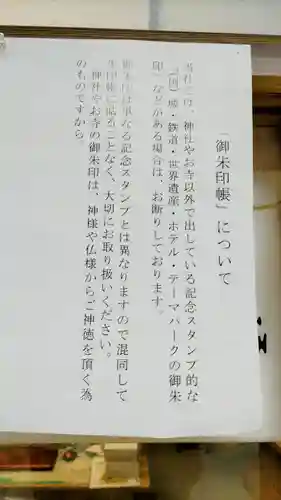 「御朱印帳」について
当社では、神社やお寺以外で出している記念スタンプ的な
「(例)城・鉄道・世界遺産・ホテル・テーマパークの御朱
印」などがある場合は、お断りしております。
御朱印は単なる記念スタンプとは異なりますので混同して
御朱印帳に貼ることなく、大切にお取り扱いください。
神社やお寺の御朱印は、神様や仏様からご神徳を頂く為
のものですから